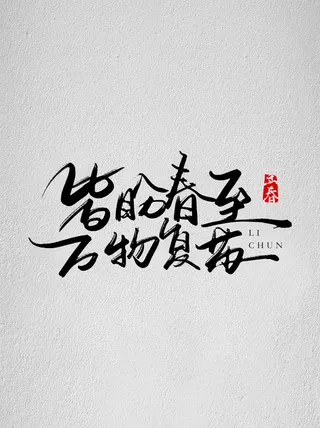 皆盼春至
万物复苏
立春
LI
CHUN